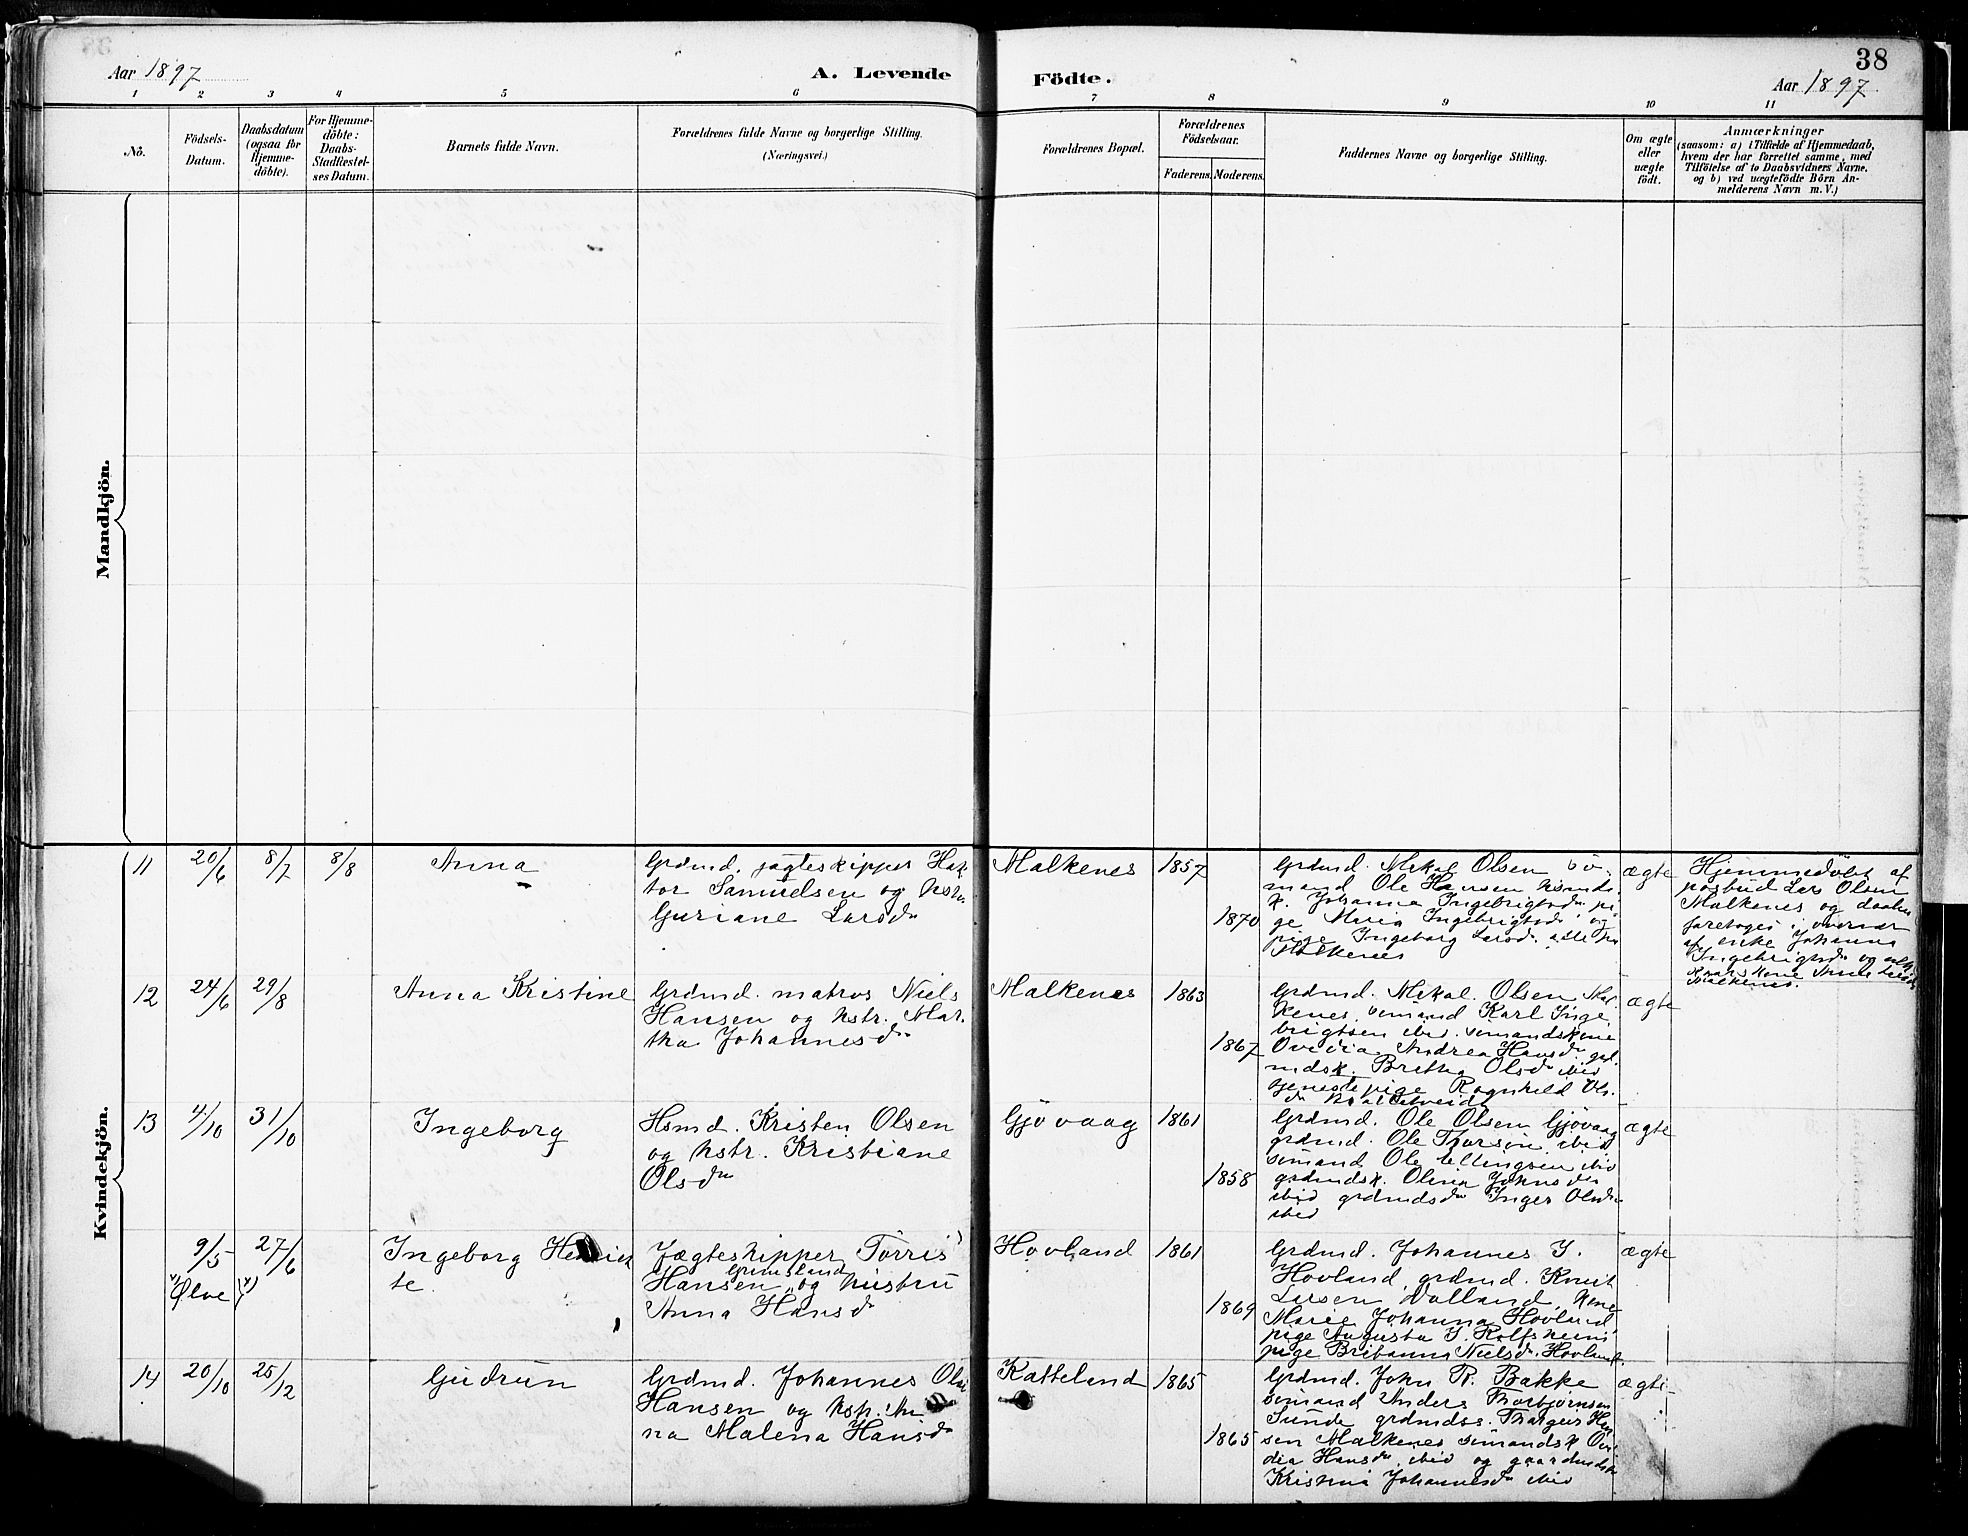 38
Aar 1897
A. Levende
Födte.
Aar 1897.
1 2 3 4 5 6 7 8 9 10 11
Nō.
Födsels-
Datum.
Daabsdatum
(ogsaa for
Hjemme-
döbte).
For Hjemme-
döbte:
Daabs-
Stadfæstel-
ses Datum.
Barnets fulde Navn.
Forældrenes fulde Navne og borgerlige Stilling.
(Næringsvei.)
Forældrenes Bopæl.
Forældrenes
Födselsaar.
Faderens.
Moderens.
Faddernes Navne og borgerlige Stilling.
Om ægte
eller
uægte
födt.
Anmærkninger
(saasom: a) i Tilfælde af Hjemmedaab,
hvem der har forrettet samme, med
Tilföielse af to Daabsvidners Navne,
og b) ved uægtefödte Börn An-
melderens Navn m. V.)
Mandkjön.
Kvindekjön.
11
20/6
8/7
8/8
Anna
Grdmd. jagteskipper Hak
tor Samuelsen og hstr.
Guriane Larsdr
Malkenes
1857
1870
Grdmd. Mikal Olsen sö-
mand Ole Hansen hsmds.
k. Johanna Ingebrigtsdr pi
ge Maria Ingebrigtsdr og
pige Ingeborg Larsdr alle fra
Malkenes
ægte
Hjemmedöbt af
posbud Lars Olsen
Malkenes og daaben
foretoges i overvær
af enke Johanna
Ingebrigtsdr og
kone Anna
Malkenes.
12
24/6
29/8
Anna Kristine
Grdmd. matros Niels
Hansen og hstr. Mar-
tha Johannesdr
Malkenes
1863
1867
Grdmd. Mikal Olsen Mal
kenes, sömand Karl Inge
brigtsen ibid. sömandskone
Ovidia Andrea Hansdr grd.
mdsk. Brittha Olsdr ibid
tjenestepige Ragnhild Ols.
dr
ægte
13
4/10
31/10
Ingeborg
Hsmd. Kristen Olsen
og hstr. Kristiane
Olsdr
Gjövaag
1861
1858
Grdmd. Ole Olsen Gjövaag
grdmd. Ole Thorsen ibid
sömand Ole Ellingsen ibid
grdmdsk. Olina Johnsdr
ibid grdmdsdr Inger Olsdr
ibid
ægte
9/5
Ølve
27/6
Ingeborg Henriet
te.
Jægteskipper Torris
Grimsland
Hansen og hustru
Anna Hansdr
Hovland
1861
1869
Grdmd. Johannes J.
Hovland, grdmd. Knut
Larsen Dalland, kone
Marie Johanna Hovland
pige Augusta J. Rolfsheim
pige Britanna Nielsdr Hovland.
ægte
14
20/10
25/12
Gudrun
Grdmd. Johannes Olai
Hansen og hstr. An
na Malena Hansdr
Katteland
1865
1865
Grdmd. John R. Bakke
sömand Anders Thorbjørnsen
Sunde grdmdss. Thorgeir Han
sen Malkenes sömandsk Ovi
dia Hansdr ibid og gaardmdsk
Kristina Johannesdr ibid
ægte